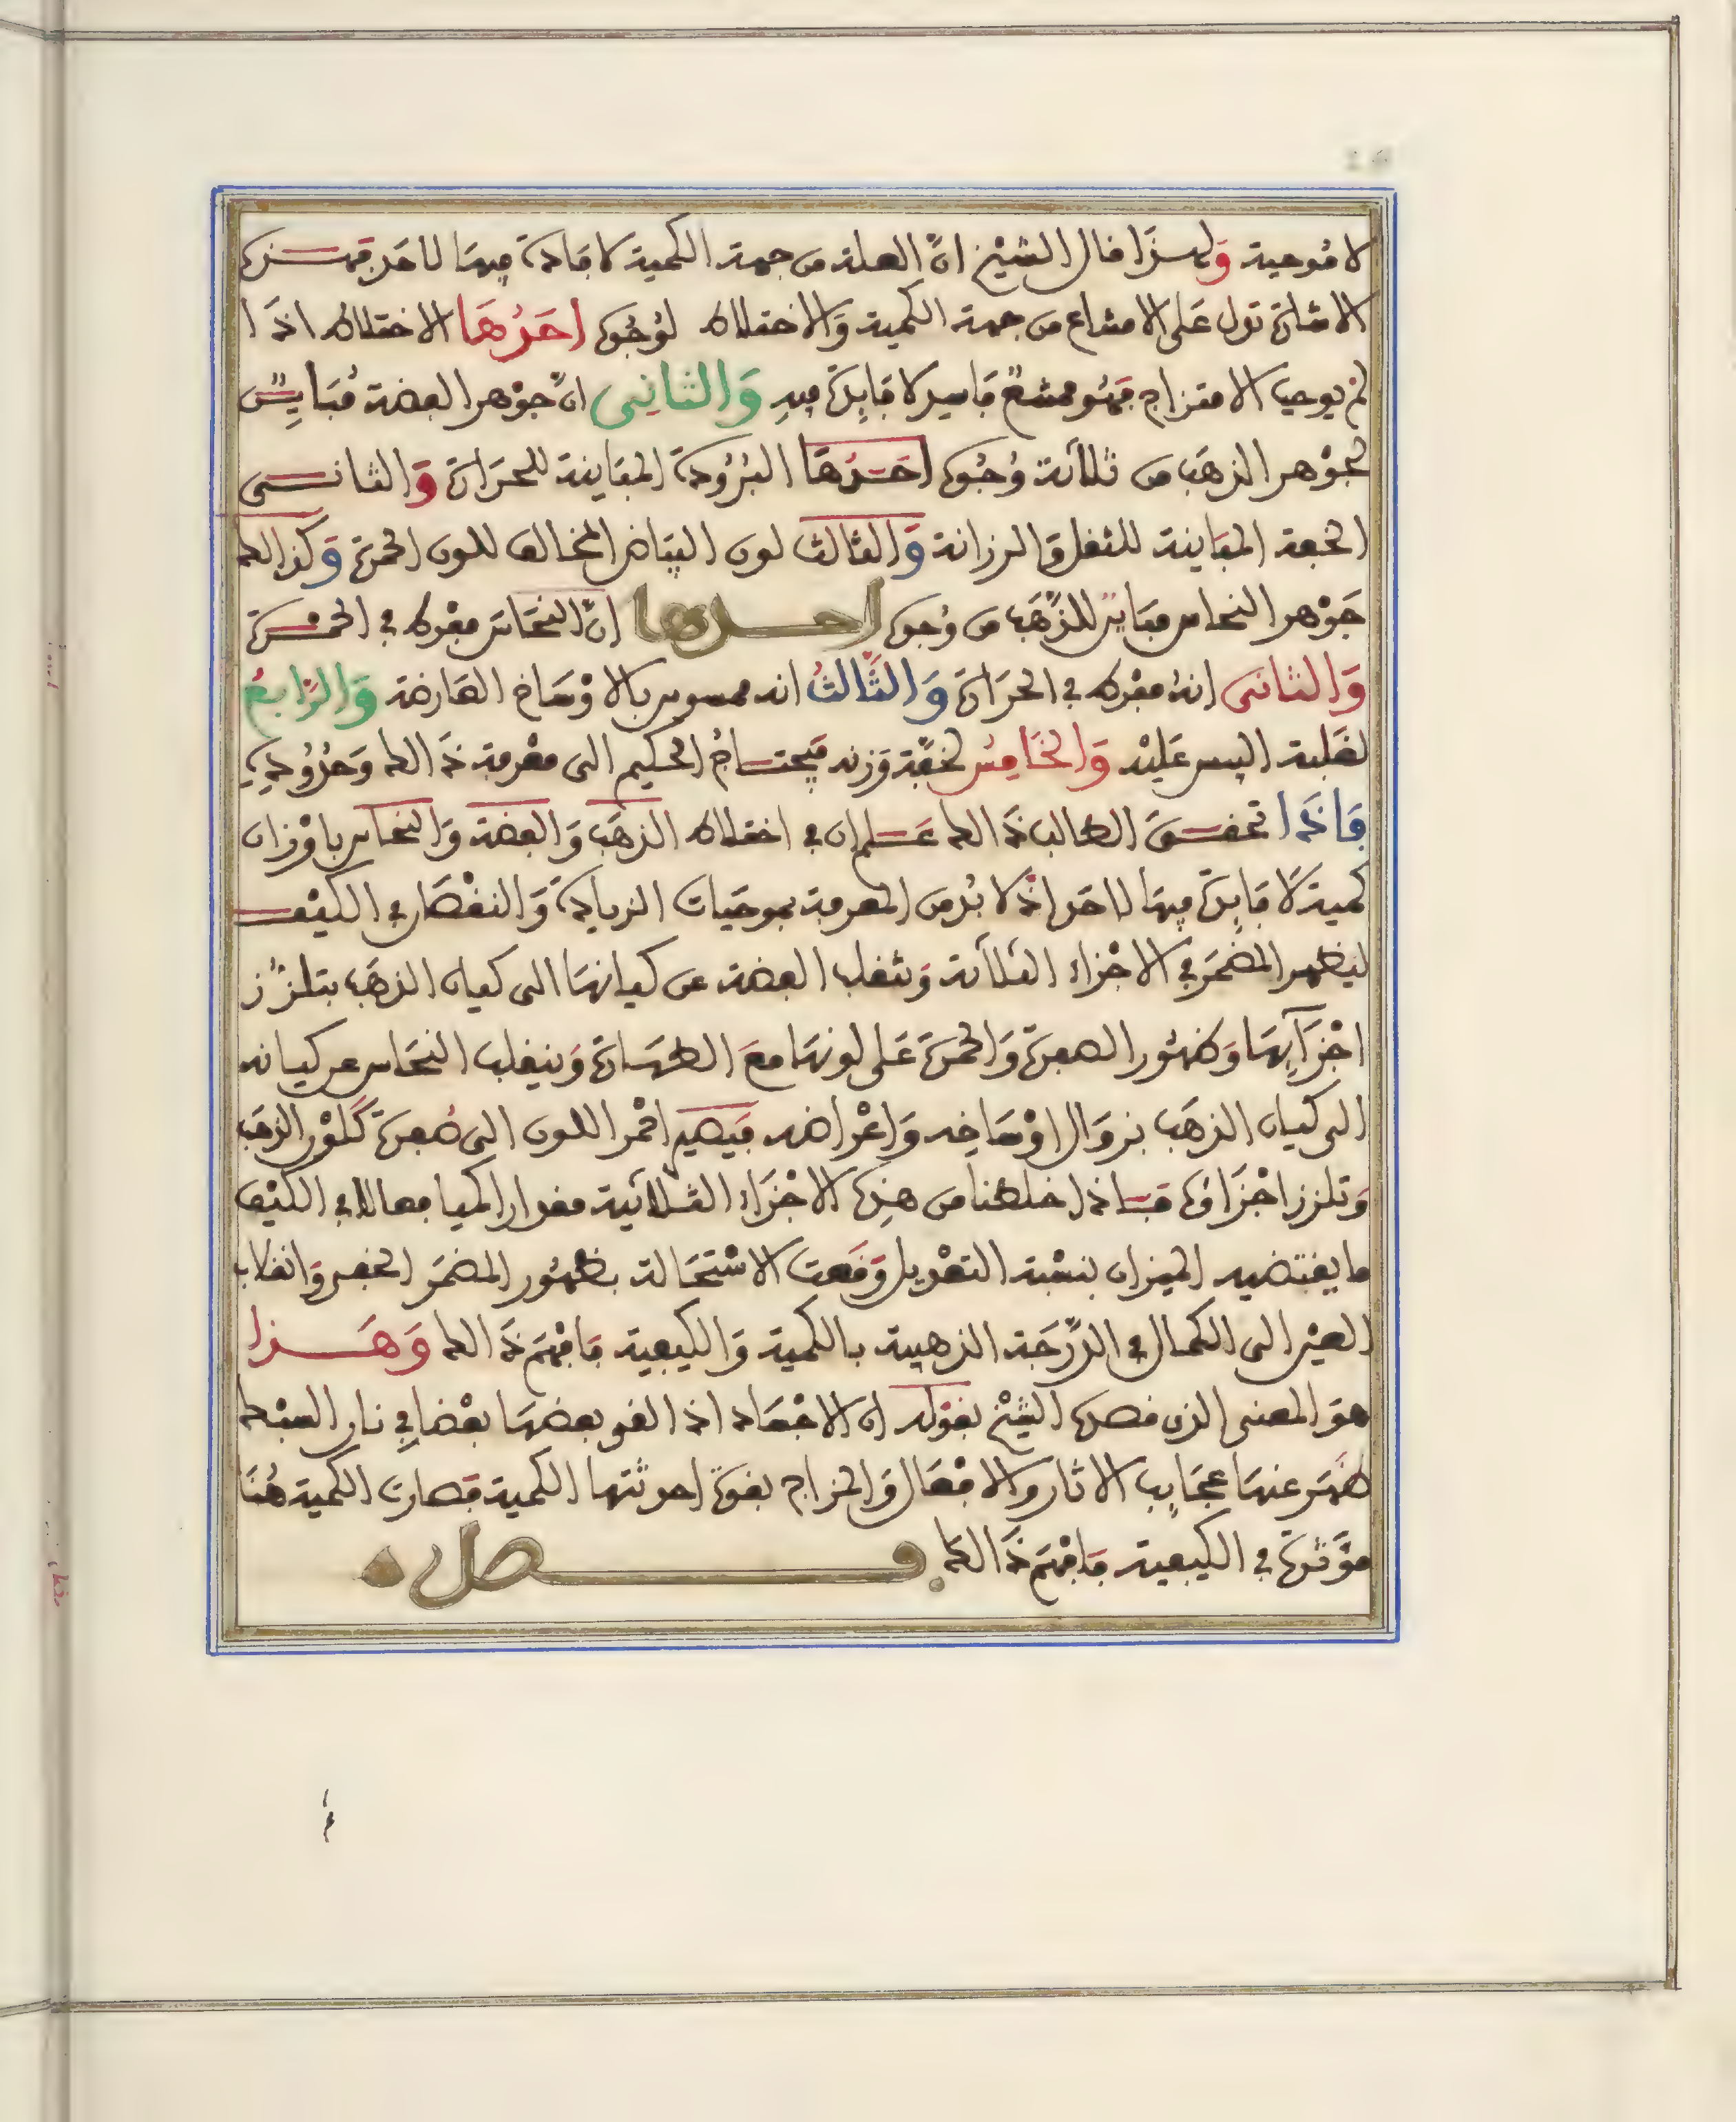 لا موجبة ولهذا قال الشيخ ان العلة من جهة الكمية لا فادة فيها لاحد فهذه
الاشارة تدل على الامتناع من جهة الكمية والاختلاط لوجوه احدها الاختلاط اذا
لم يوجب الامتزاج فهو ممتنع فاسد لا فايدة فيه والثاني ان جوهر الفضة مباين
لجوهر الذهب من ثلاثة وجوه احدها البرودة المباينة للحرارة والثاني
الخفة المباينة للثقل والرزانة والثالث لون البياض المخالف للون الحمرة وكذالك
جوهر النحاس مباين للذهب من وجوه احدها ان النحاس مفرط في الحمرة
والثاني انه مفرط في الحرارة والثالث انه ممسوس بالاوساخ العارضة والرابع
لغلبة اليبس عليه والخامس لخفة وزنه فيحتاج الحكيم الى معرفة ذالك وحدوده
فاذا تحقق الطالب ذالك علم ان في اختلاط الذهب والفضة والنحاس باوزان
كمية لا فايدة فيها لاحد اذ لا بد من المعرفة بموجبات الزيادة والنقصان في الكيف
ليظهر المضمر في الاجزاء الثلاثة وتنقلب الفضة عن كيانها الى كيان الذهب بتلزز
اجزآيها وظهور الصفرة والحمرة على لونها مع الطهارة وينقلب النحاس عن كيانه
الى كيان الذهب بزوال اوساخه واعراضه فيصير احمر اللون الى صفرة كلون الذهب
وتلزز اجزاؤه فاذا خلطنا من هذه الاجزاء الثلاثية مقدارا كميا معادلا في الكيف
ما يقتضيه الميزان بنسبة التعديل وقعت الاستحالة بظهور المضمر الخفي وانقلاب
العين الى الكمال في الدرجة الذهبية بالكمية والكيفية فافهم ذالك وهذا
هو المعنى الذي قصده الشيخ بقوله ان الاجساد اذا القي بعضها بعضا في نار السبك
ظهر عنها عجايب الاثار والافعال والمزاج بقوة احدثتها الكمية فصارت الكمية هنا
مؤثرة في الكيفية فافهم ذالك فصل